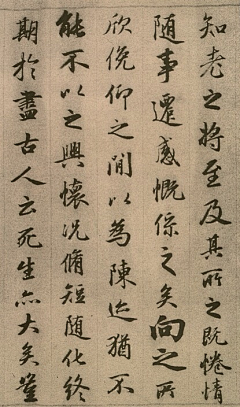 知老之將至及其所之既惓情
随事遷感慨係之矣向之所
欣俛仰之閒以為陳迹猶不
能不以之興懷況脩短随化終
期於盡古人云死生亦大矣豈